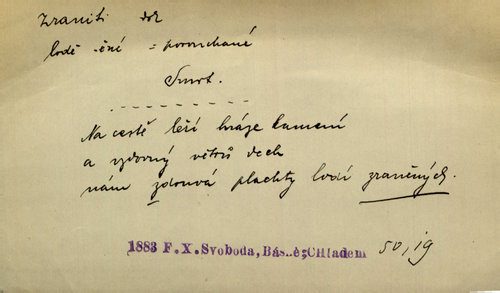 Zraniti dok
lodě -ěné = porouchané
Smrt.
Na cestě leží hráze kamení
a vzdorný větrů dech
nám zdouvá plachty lodí zraněných.
1883 F.X.Svoboda, Básně;Chladem 50,19